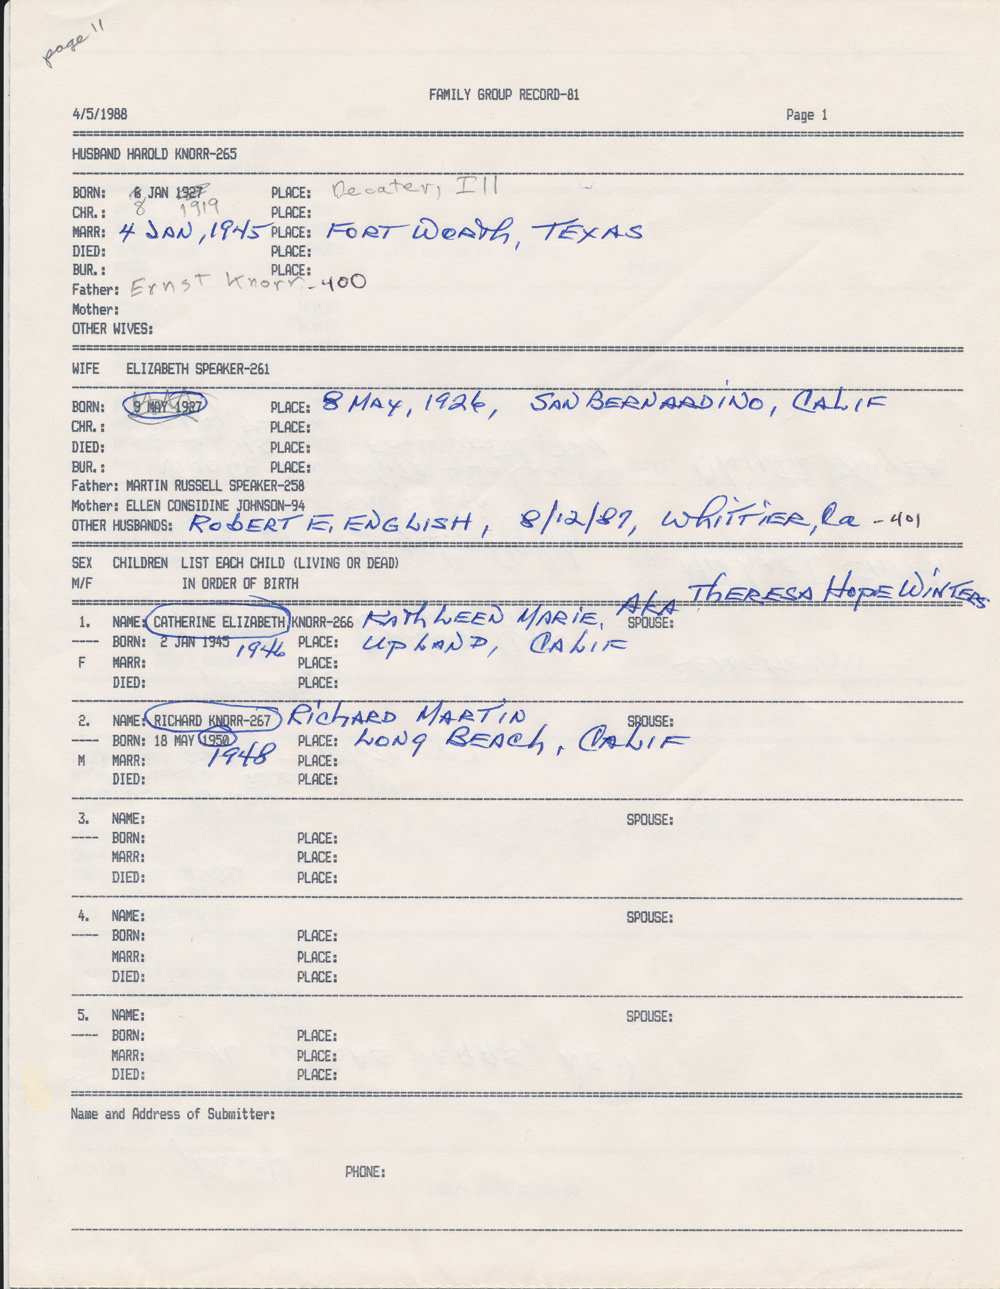 page 11
FAMILY GROUP RECORD-81
4/5/1988 Page 1
HUSBAND HAROLD KNORR-265
BORN: 8 JAN 1927 PLACE: Decater, Ill
CHR.: 8 1919 PLACE:
MARR: 4 JAN, 1945 PLACE: FORT WORTH, TEXAS
DIED: PLACE:
BUR.: PLACE:
Father: Ernst Knorr-400
Mother:
OTHER WIVES:
WIFE ELIZABETH SPEAKER-261
BORN: 9 MAY 1927 PLACE: 8 MAY, 1926, SAN BERNARDINO, CALIF
CHR.: PLACE:
DIED: PLACE:
BUR.: PLACE:
Father: MARTIN RUSSELL SPEAKER-258
Mother: ELLEN CONSIDINE JOHNSON-94
OTHER HUSBANDS: ROBERT E, ENGLISH, 8/12/87, WHITTIER, Ca -401
SEX CHILDREN LIST EACH CHILD (LIVING OR DEAD)
M/F IN ORDER OF BIRTH
AKA THERESA HOPE WINTERS
1. NAME: CATHERINE ELIZABETH KNORR-266 KATHLEEN MARIE, SPOUSE:
---- BORN: 2 JAN 1945 1946 PLACE: UPLAND, CALIF
F MARR: PLACE:
DIED: PLACE:
2. NAME: RICHARD KNORR-267 RICHARD MARTIN SPOUSE:
---- BORN: 18 MAY 1950 PLACE: LONG BEACH, CALIF
M MARR: 1948 PLACE:
DIED: PLACE:
3. NAME: SPOUSE:
---- BORN: PLACE:
MARR: PLACE:
DIED: PLACE:
4. NAME: SPOUSE:
---- BORN: PLACE:
MARR: PLACE:
DIED: PLACE:
5. NAME: SPOUSE:
---- BORN: PLACE:
MARR: PLACE:
DIED: PLACE:
Name and Address of Submitter:
PHONE: